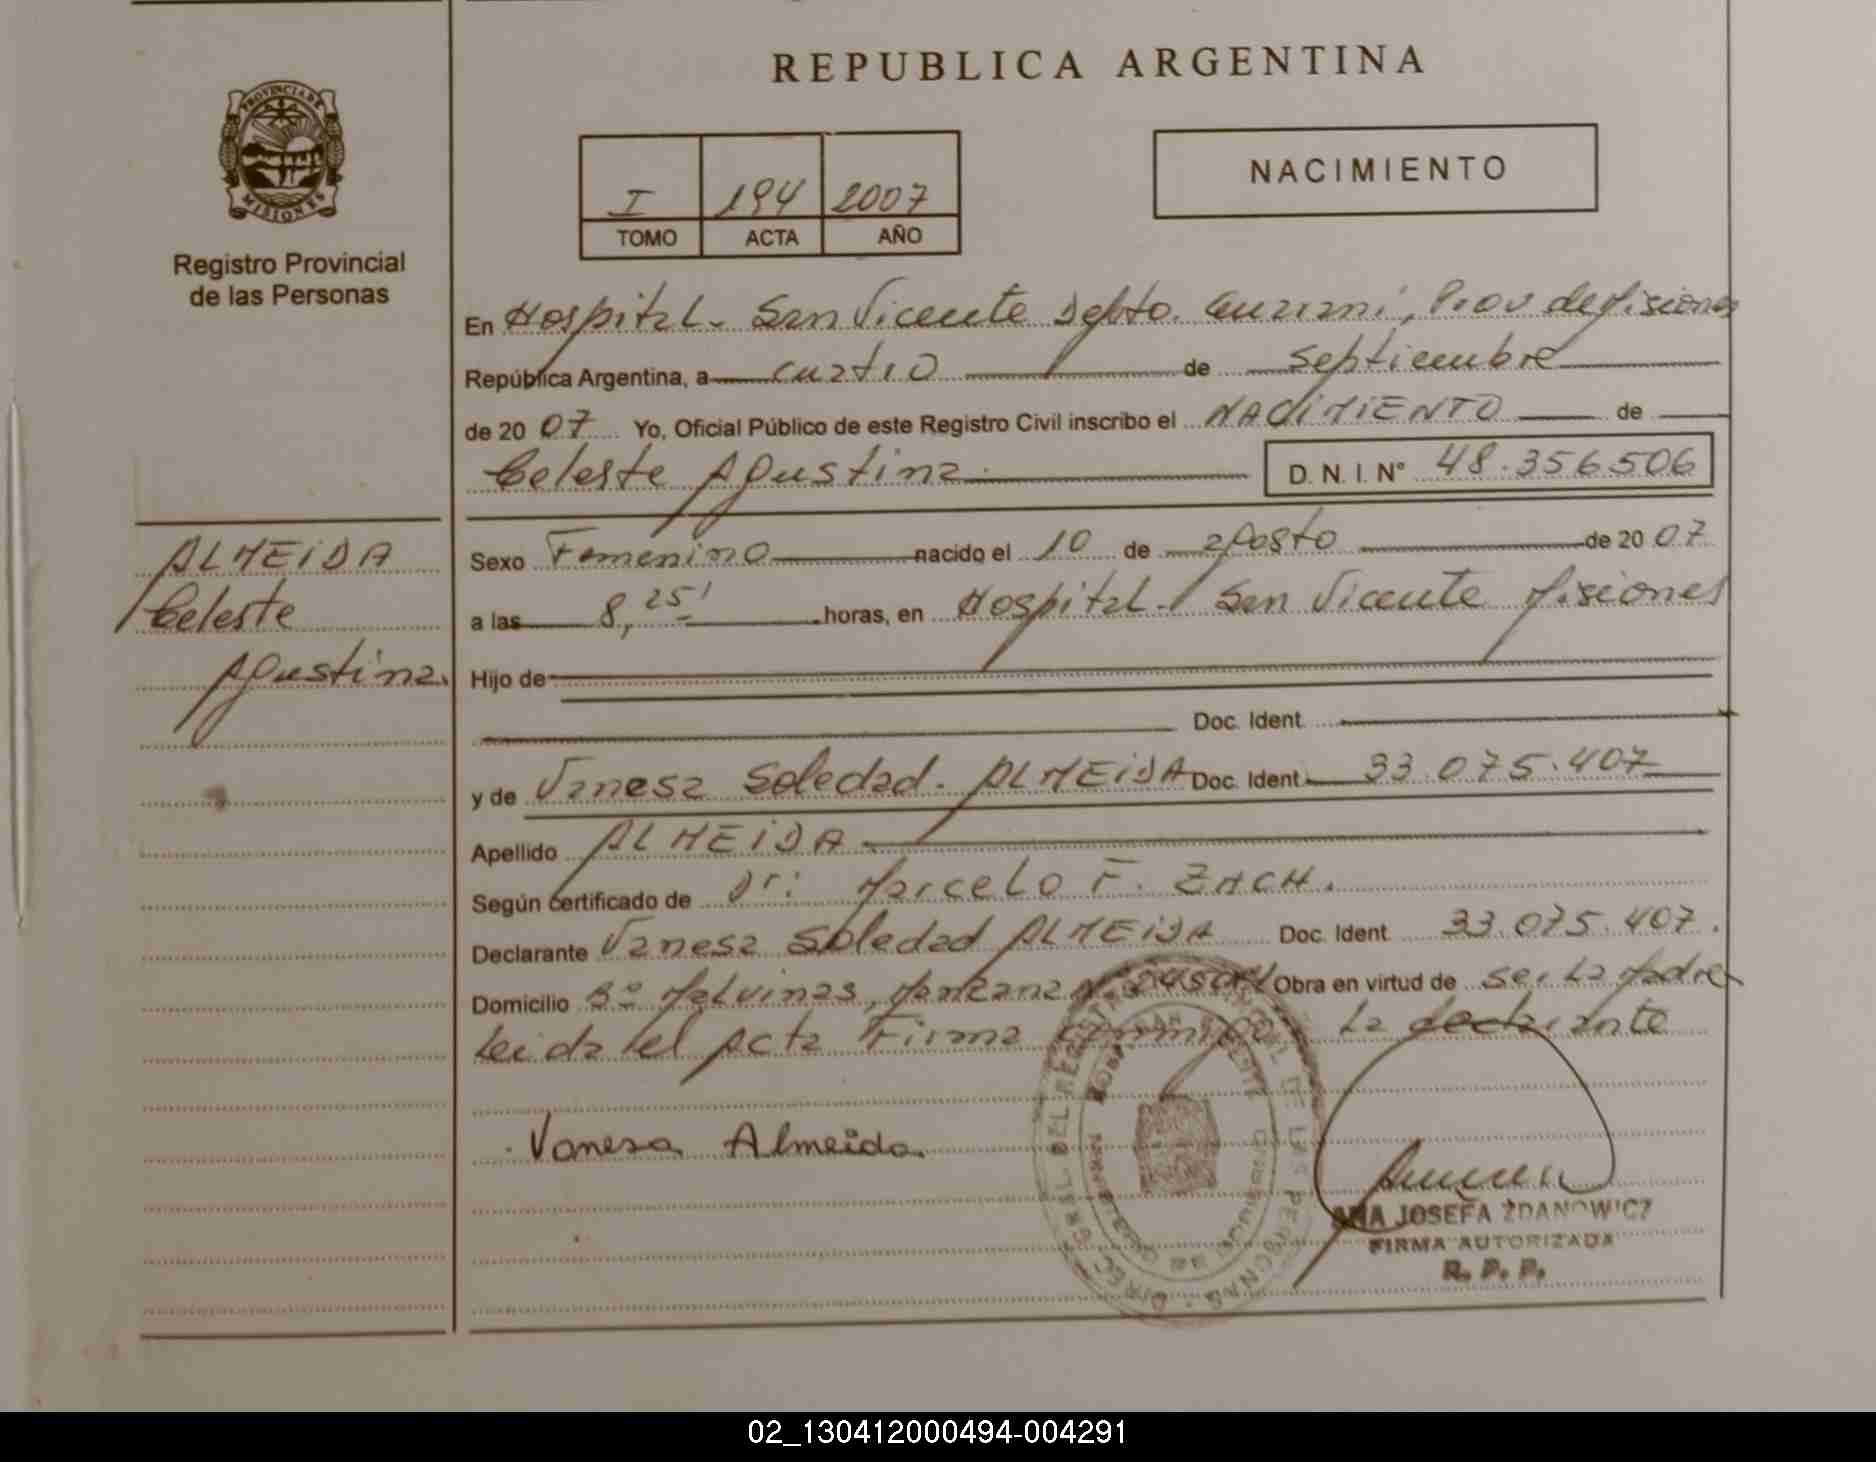 REPUBLICA ARGENTINA
PROVINCIA DE
MISIONES
Registro Provincial
de las Personas
I 194 2007
TOMO ACTA AÑO
NACIMIENTO
En Hospital - San Vicente Dpto. Guarani, Prov de Misiones
República Argentina, a cuatro de septiembre
de 20 07 Yo, Oficial Público de este Registro Civil inscribo el NACIMIENTO de
Celeste Agustina D. N. I. Nº 48.356.506
ALMEIDA
Celeste
Agustina.
Sexo Femenino nacido el 10 de agosto de 20 07
a las 8,25' horas, en Hospital - San Vicente Misiones
Hijo de
Doc. Ident.
y de Vanesa Soledad. ALMEIDA Doc. Ident. 33.075.407
Apellido ALMEIDA
Según certificado de Dr: Marcelo F. ZACH.
Declarante Vanesa Soledad ALMEIDA Doc. Ident. 33.075.407.
Domicilio Bº Malvinas, Manzana Obra en virtud de ser La Madre
Leida el Acta Firma conmigo La declarante
Vanesa Almeida.
ANA JOSEFA ZDANOWICZ
FIRMA AUTORIZADA
R. P. P.
02_130412000494-004291